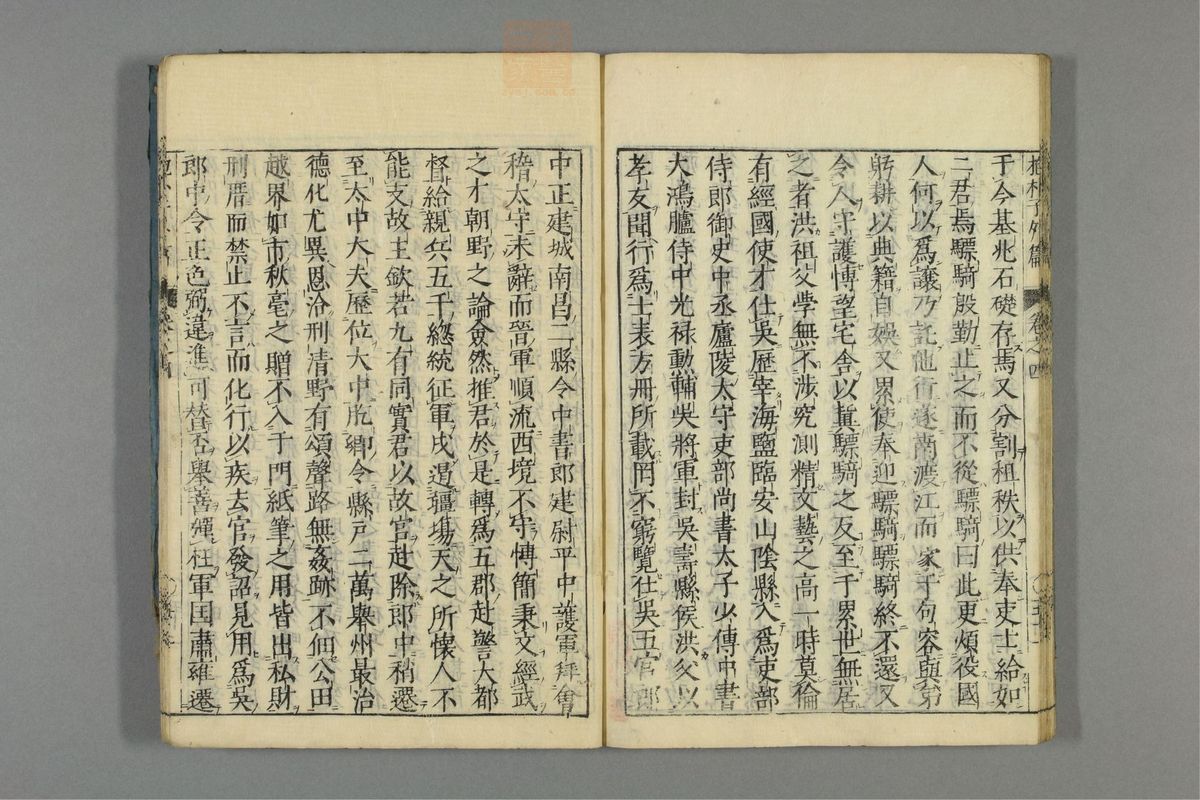 抱朴子外篇 卷之四
于今基兆石礎存焉又分割租秩以供奉吏士給如
二君焉驃騎殷勤止之而不從驃騎曰此更煩役國
人何以爲讓乃託他行遂南渡江而家于句容與弟
躬耕以典籍自娯又累使奉迎驃騎驃騎終不還又
令人守護博望宅舍以冀驃騎之反至于累世無居
之者洪祖父學無不渉究測精文藝之高一時莫倫
有經國使才仕吳歷宰海鹽臨安山陰縣入爲吏部
侍郎御史中丞廬陵太守吏部尚書太子少傅中書
大鴻臚侍中光禄勲輔吳將軍封吳壽縣侯洪父以
孝友聞行爲士表方冊所載罔不窮覽仕吳五官郎
中正建城南昌二縣令中書郎建尉平中護軍拜會
稽太守未辭而晉軍順流西境不守博簡秉文經武
之才朝野之論僉然推君於是轉爲五郡赴警大都
督給親兵五千總統征軍戍遏疆塲天之所懷人不
能支故主欽若九有同實君以故官赴除郎中稍遷
至太中大夫歷位大中肥卿令縣戸二萬舉州最治
德化尤異恩洽刑清野有頌聲路無姦跡不佃公田
越界如市秋毫之贈不入于門紙筆之用皆出私財
刑厝而禁止不言而化行以疾去官發詔見用爲吳
郎中令正色弼違進可替否舉善彈枉軍国肅雍遷